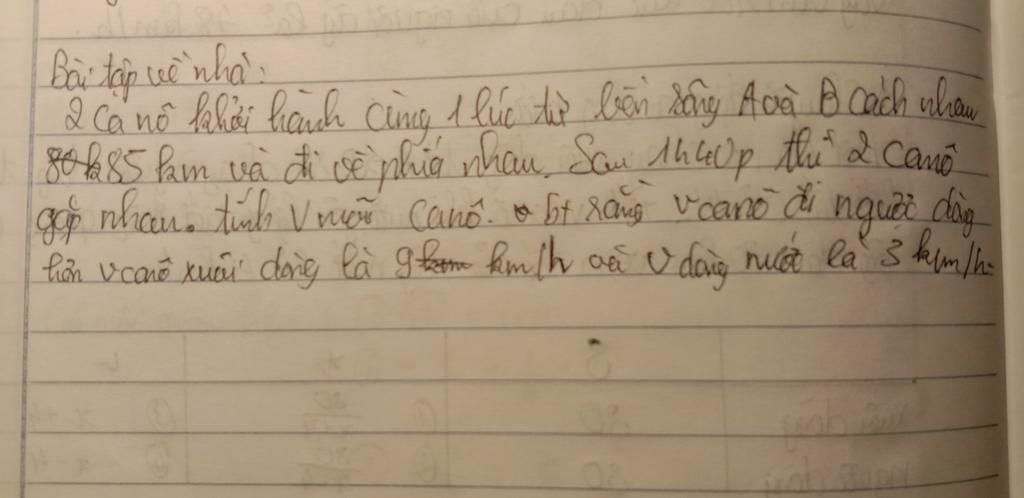 Bài tập về nhà:
2 Ca nô khởi hành cùng 1 lúc từ bến sông A và B cách nhau
85 km và đi về phía nhau. Sau 1h40p thì 2 Canô
gặp nhau. tính V mỗi Canô. bt rằng vcanô đi ngược dòng
hơn vcanô xuôi dòng là 9 km/h và v dòng nước là 3 km/h.